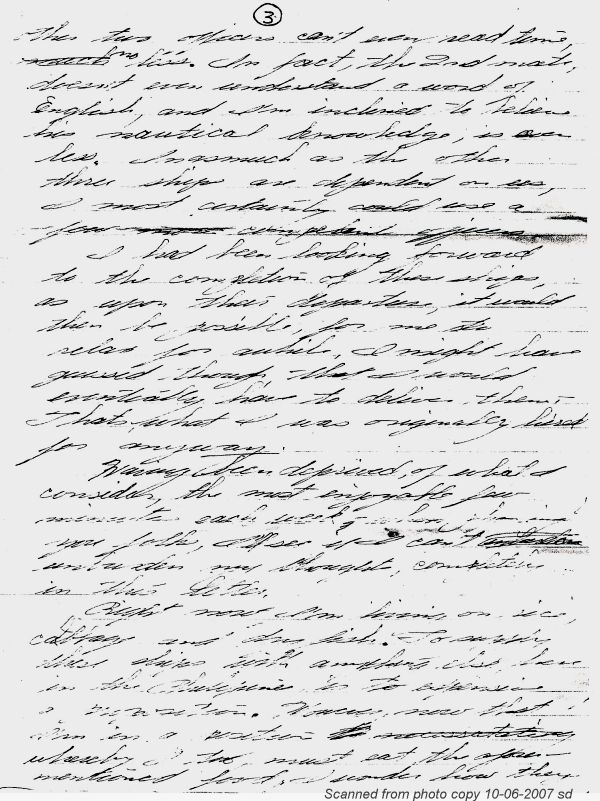 3
other two officers can't even read time,
less. In fact, the 2nd mate,
doesn't even understand a word of
English, and I'm inclined to believe
his nautical knowledge, is even
less. Inasmuch as the other
three ships are dependent on us,
I most certainly could use a
few competent officers
I had been looking forward
to the completion of these ships,
as upon their departure, it would
then be possible, for me to
relax for awhile. I might have
guessed though, that I would
eventually have to deliver them.
Thats what I was originally hired
for anyway.
Having been deprived, of what I
consider, the most enjoyable few
minutes each week, when
you folks, I'll see if I can't
unburden my thoughts, completely
in this letter.
Right now I'm living on rice,
cabbage and dry fish. To supply
these ships with anything else, here
in the Philippines is to expensive
a However, now that
I'm in a position
whereby I too, must eat the afore-
mentioned food, I wonder how they
Scanned from photo copy 10-06-2007 sd